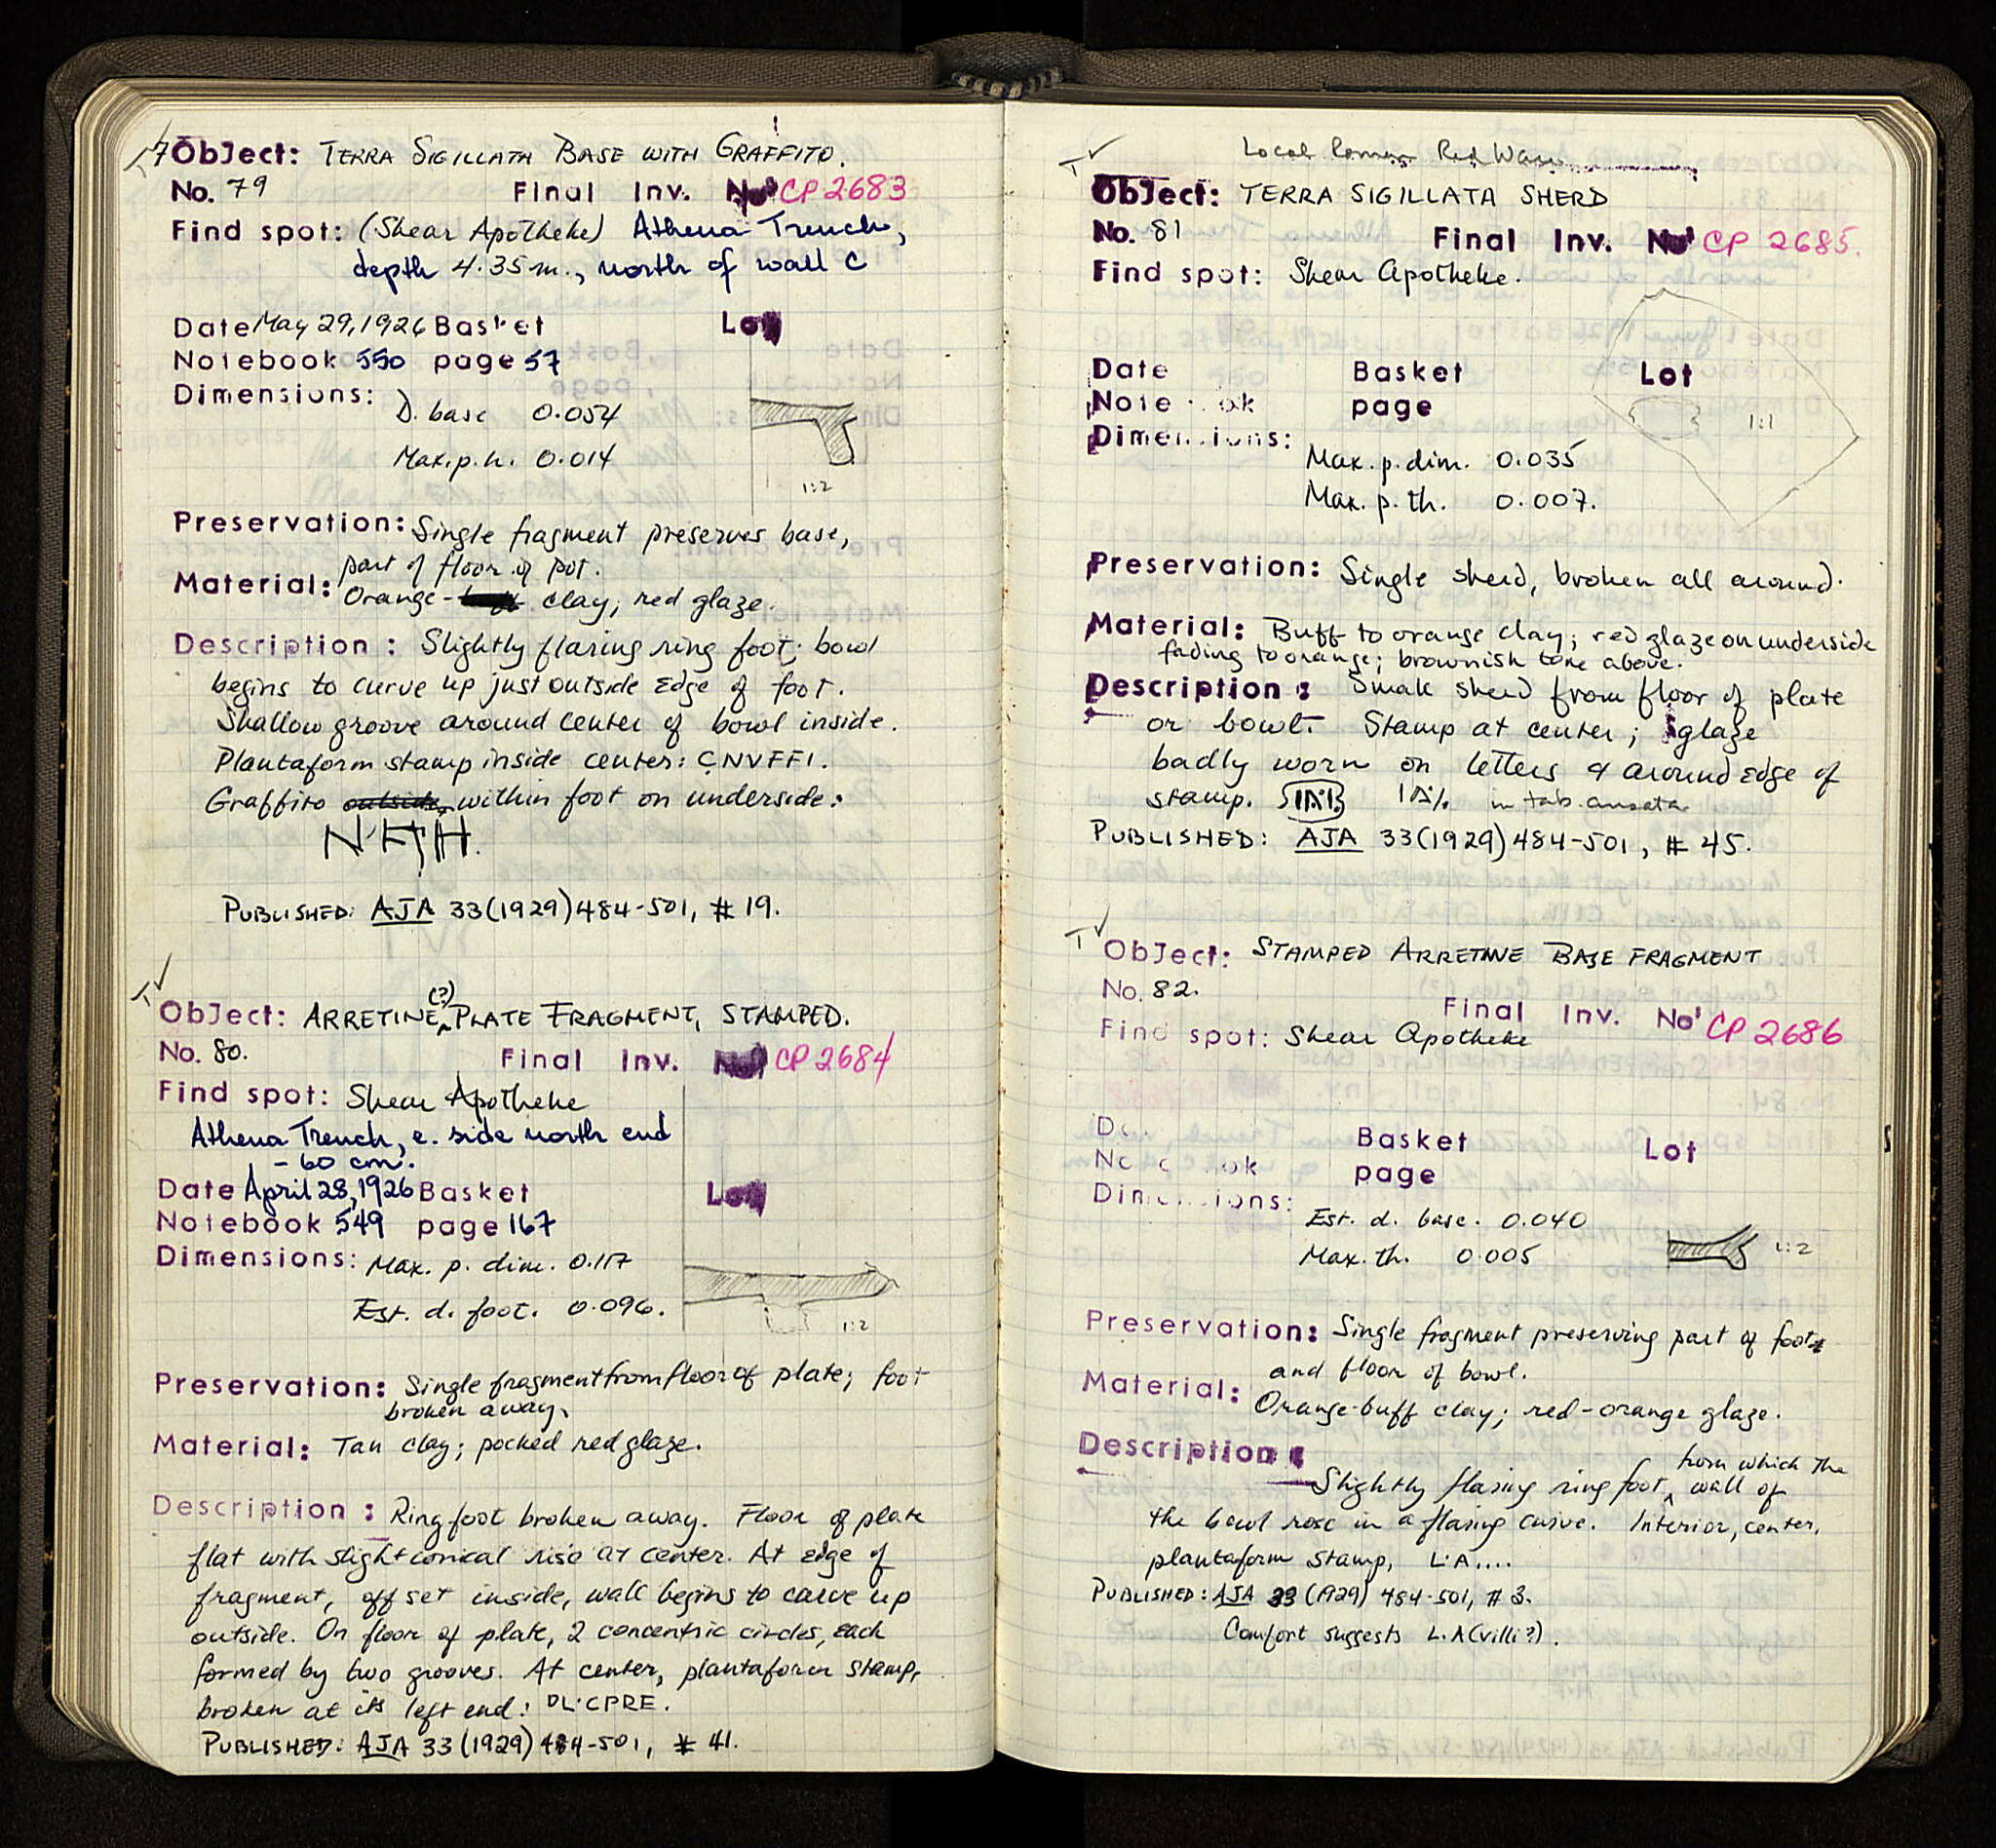 Object: TERRA SIGILLATA BASE WITH GRAFFITO.
No. 79 Final Inv. No. CP 2683
Find spot: (Shear Apotheke) Athena Trench,
depth 4.35 m., north of wall C
Date May 29, 1926 Basket Lot
Notebook 550 page 57
Dimensions: D. base 0.054
Max. p. h. 0.014
1:2
Preservation: Single fragment preserves base,
part of floor of pot.
Material: Orange- clay; red glaze.
Description: Slightly flaring ring foot; bowl
begins to curve up just outside edge of foot.
Shallow groove around center of bowl inside.
Plantaform stamp inside center: CNVFFI.
Graffito outside within foot on underside:
PUBLISHED: AJA 33 (1929) 484-501, # 19.
Object: ARRETINE (?) PLATE FRAGMENT, STAMPED.
No. 80. Final Inv. No. CP 2684
Find spot: Shear Apotheke
Athena Trench, e. side north end
- 60 cm.
Date April 28, 1926 Basket Lot
Notebook 549 page 167
Dimensions: Max. p. dim. 0.117
Est. d. foot. 0.096.
1:2
Preservation: Single fragment from floor of plate; foot
broken away.
Material: Tan clay; pocked red glaze.
Description: Ring foot broken away. Floor of plate
flat with slight conical rise at center. At edge of
fragment, offset inside, wall begins to curve up
outside. On floor of plate, 2 concentric circles, each
formed by two grooves. At center, plantaform stamp,
broken at its left end: DL·CPRE.
PUBLISHED: AJA 33 (1929) 484-501, # 41.
Local Roman Red Ware
Object: TERRA SIGILLATA SHERD
No. 81 Final Inv. No. CP 2685.
Find spot: Shear Apotheke.
Date Basket Lot
Notebook page
1:1
Dimensions: Max. p. dim. 0.035
Max. p. th. 0.007.
Preservation: Single sherd, broken all around.
Material: Buff to orange clay; red glaze on underside
fading to orange; brownish tone above.
Description: Small sherd from floor of plate
or bowl. Stamp at center; glaze
badly worn on letters & around edge of
stamp. in tab. ansata
PUBLISHED: AJA 33 (1929) 484-501, # 45.
Object: STAMPED ARRETINE BASE FRAGMENT
No. 82. Final Inv. No. CP 2686
Find spot: Shear Apotheke
Basket Lot
page
Dimensions: Est. d. base. 0.040
Max. th. 0.005
1:2
Preservation: Single fragment preserving part of foot
and floor of bowl.
Material: Orange-buff clay; red-orange glaze.
Description: Slightly flaring ring foot from which the wall of
the bowl rose in a flaring curve. Interior, center,
plantaform stamp, L·A....
PUBLISHED: AJA 33 (1929) 484-501, # 3.
Comfort suggests L.A(villi?).